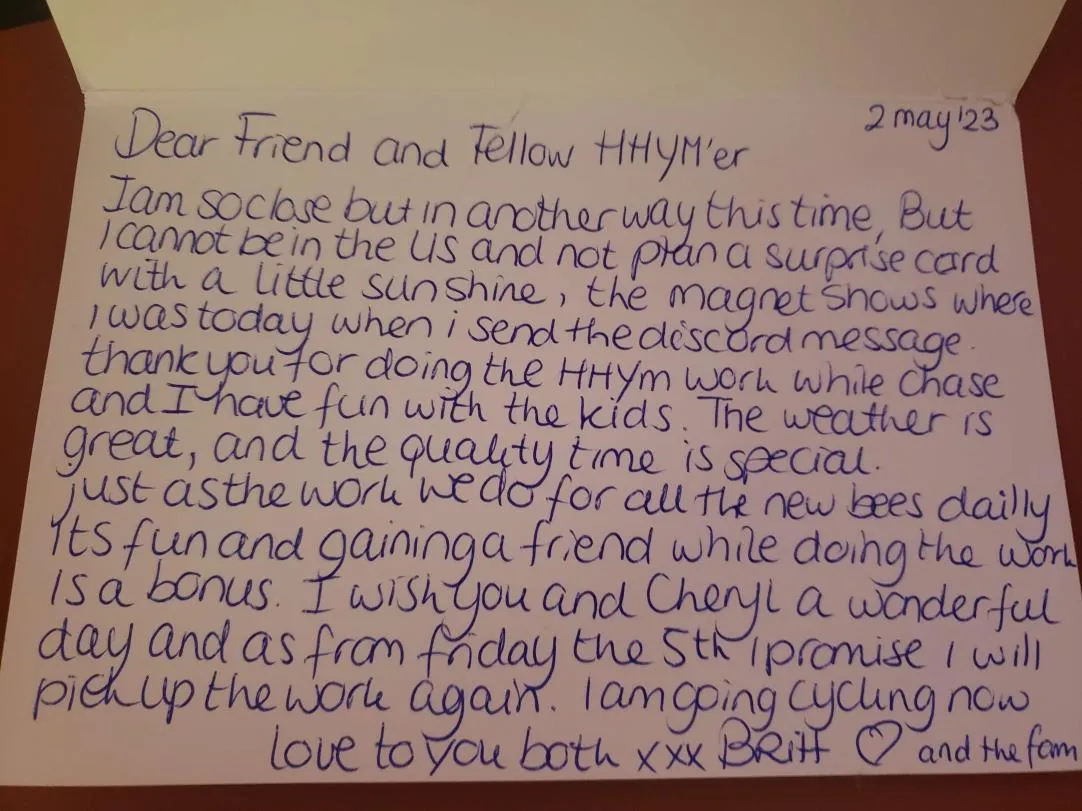 2 may '23
Dear Friend and Fellow HHYM'er
I am so close but in another way this time, But
I cannot be in the US and not plan a surprise card
with a little sunshine, the magnet shows where
I was today when i send the discord message.
thank you for doing the HHYm work while Chase
and I have fun with the kids. The weather is
great, and the quality time is special.
just as the work we do for all the new bees dailly
Its fun and gaining a friend while doing the work
Is a bonus. I wish you and Cheryl a wonderful
day and as from friday the 5th I promise I will
pick up the work again. I am going cycling now
love to you both xxx BRitt ♡ and the fam